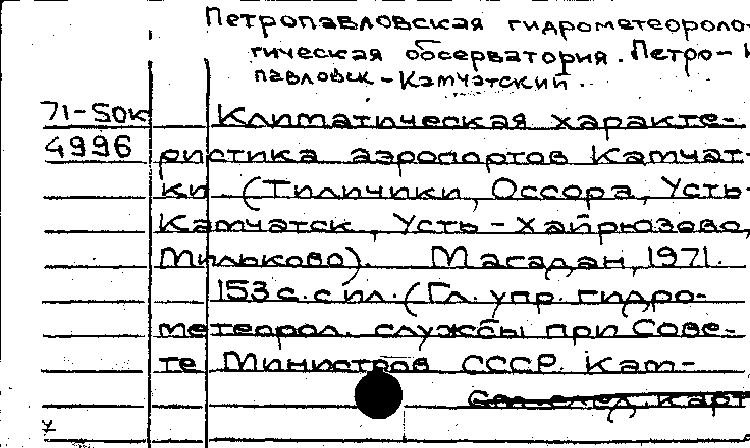 Петропавловская гидрометеороло-
гическая обсерватория. Петро-
павловск-Камчатский.
71-50к Климатическая характе-
4996 ристика аэропортов Камчат-
ки (Тиличики, Оссора, Усть-
Камчатск, Усть-Хайрюзово,
Мильково). Магадан, 1971.
153 с. с ил. (Гл. упр. гидро-
метеорол. службы при Сове-
те Министров СССР. Кам-
См. след. карт